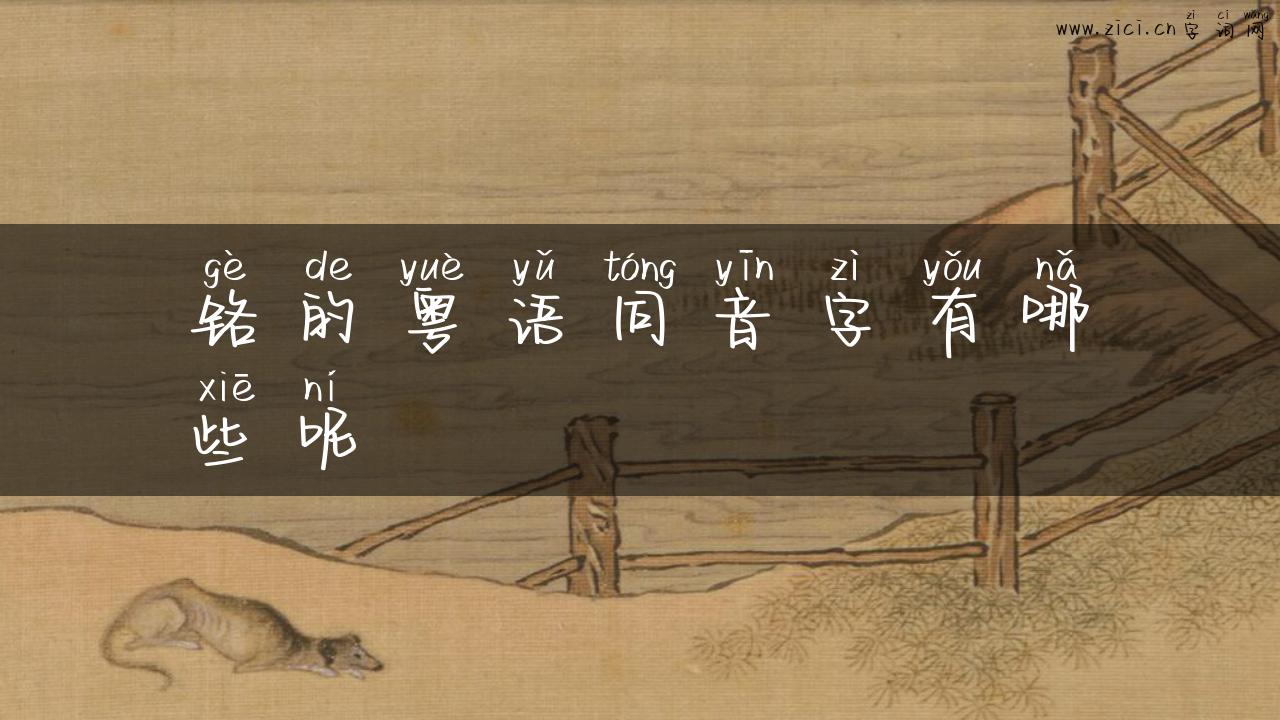 zì cí wǎng
www.zici.cn 字 词 网
gè de yuè yǔ tóng yīn zì yǒu nǎ
铬 的 粤 语 同 音 字 有 哪
xiē ní
些 呢